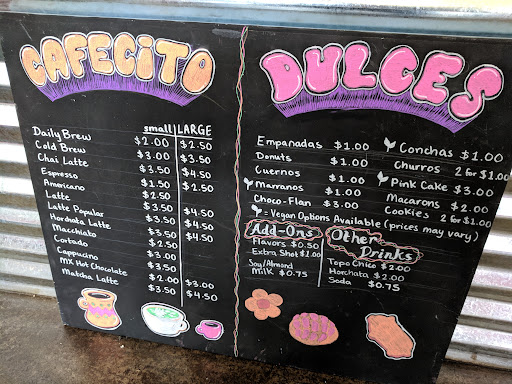 CAFECITO
small LARGE
Daily Brew $2.00 $2.50
Cold Brew $3.00 $3.50
Chai Latte $3.50 $4.50
Espresso $1.50 $2.50
Americano $2.50
Latte $3.50 $4.50
Latte Popular $3.50 $4.50
Horchata Latte $3.50 $4.50
Macchiato $2.50
Cortado $3.00
Cappucino $3.00
MX Hot Chocolate $2.00 $3.00
Matcha Latte $3.50 $4.50
DULCES
Empanadas $1.00
Donuts $1.00
Cuernos $1.00
Marranos $1.00
Choco-Flan $3.00
Conchas $1.00
Churros 2 for $1.00
Pink Cake $3.00
Macarons $2.00
Cookies 2 for $1.00
= Vegan Options Available (prices may vary)
Add-Ons
Flavors $0.50
Extra Shot $1.00
Soy/Almond
Milk $0.75
Other
Drinks
Topo Chico $2.00
Horchata $2.00
Soda $0.75